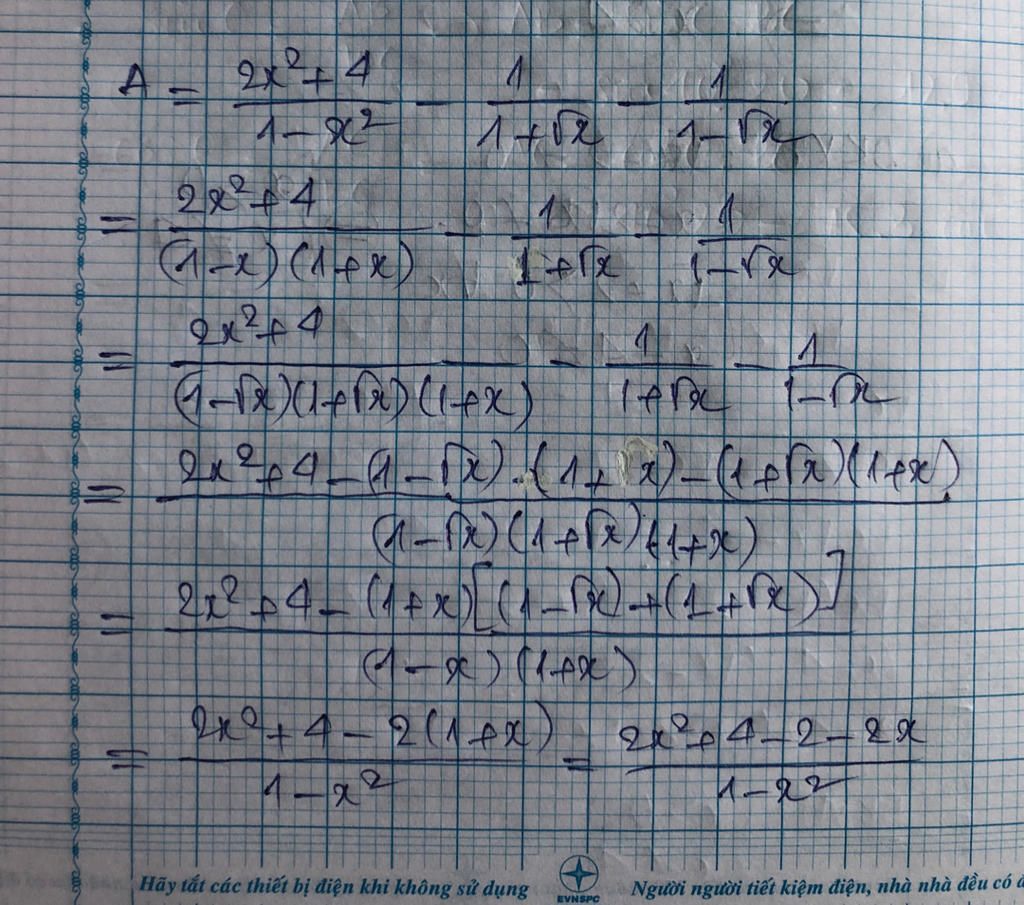 A = (2x² + 4)/(1 - x²) - 1/(1 + √x) - 1/(1 - √x)
= (2x² + 4)/((1 - x)(1 + x)) - 1/(1 + √x) - 1/(1 - √x)
= (2x² + 4)/((1 - √x)(1 + √x)(1 + x)) - 1/(1 + √x) - 1/(1 - √x)
= (2x² + 4 - (1 - √x).(1 + √x) - (1 + √x)(1 + x))/((1 - √x)(1 + √x)(1 + x))
= (2x² + 4 - (1 + x)[(1 - √x) + (1 + √x)])/((1 - x)(1 + x))
= (2x² + 4 - 2(1 + x))/(1 - x²) = (2x² + 4 - 2 - 2x)/(1 - x²)
Hãy tắt các thiết bị điện khi không sử dụng
EVNSPC
Người người tiết kiệm điện, nhà nhà đều có